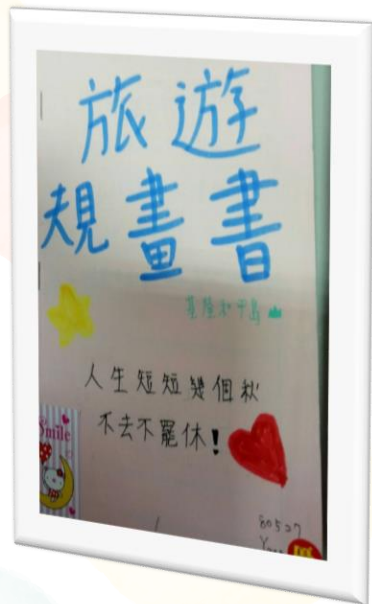 旅遊
規畫書
基隆和平島
人生短短幾個秋
不去不罷休!
Smile
80527